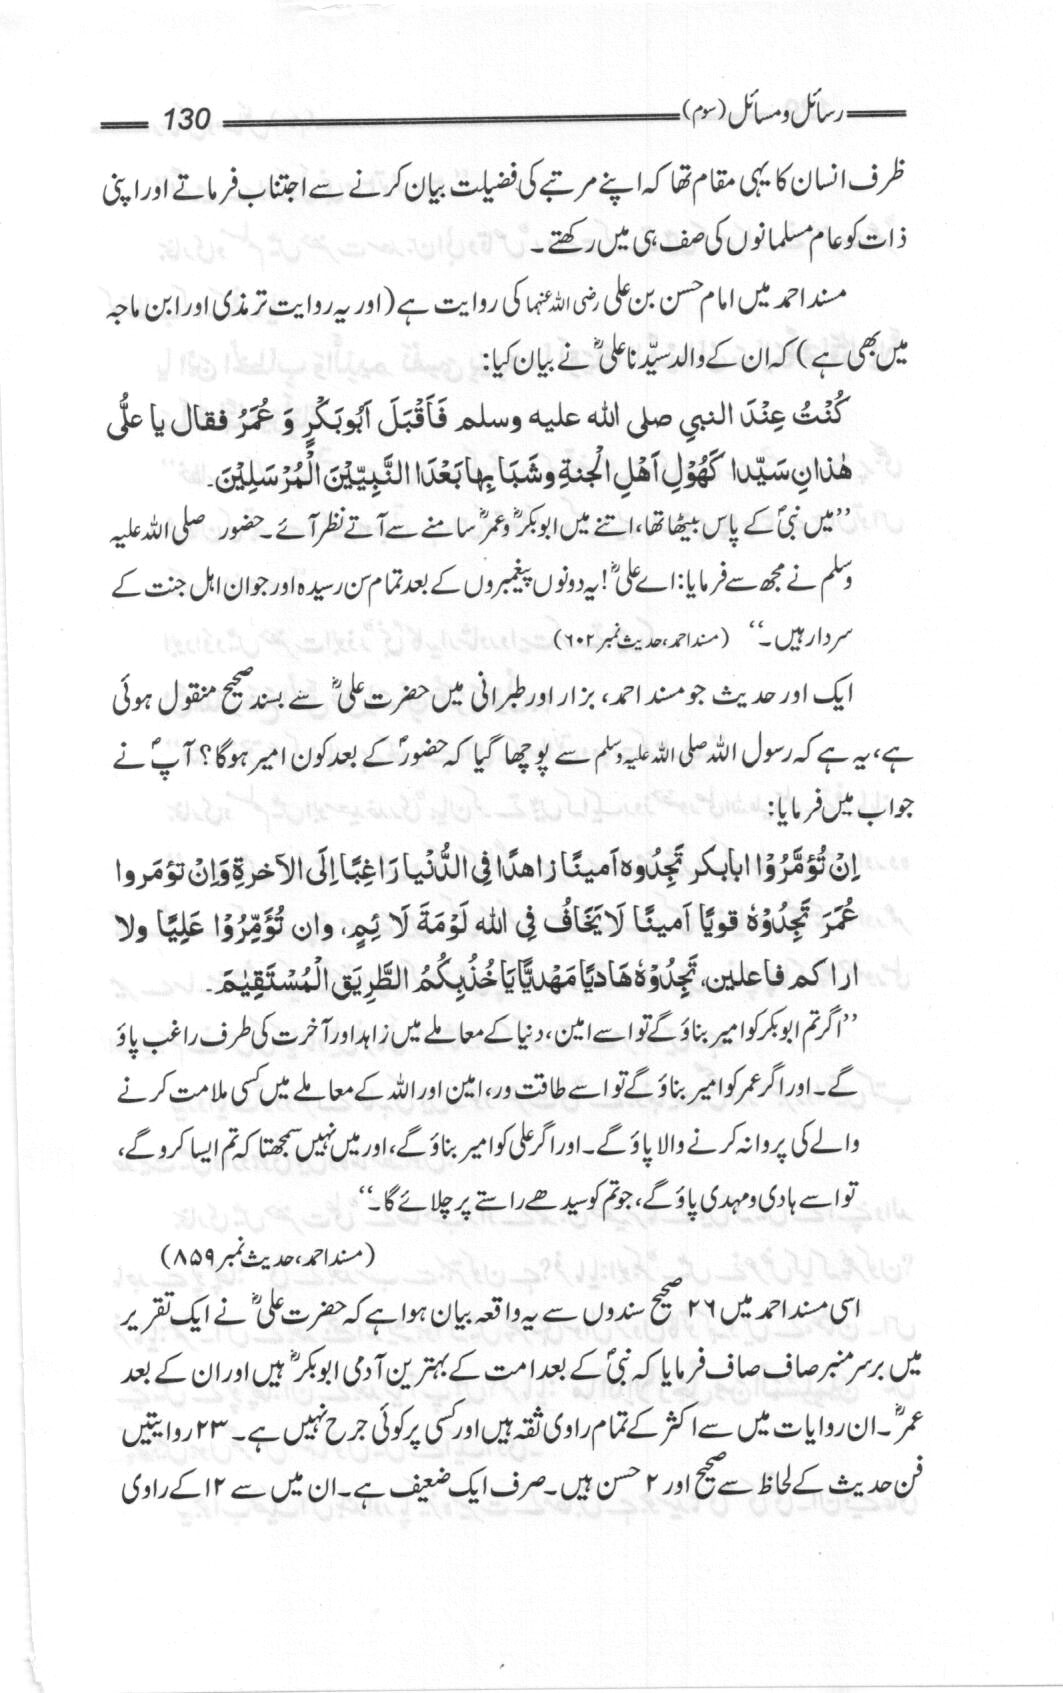 رسائل و مسائل (سوم) 130
ظرف انسان کا یہی مقام تھا کہ اپنے مرتبے کی فضیلت بیان کرنے سے اجتناب فرماتے اور اپنی
ذات کو عام مسلمانوں کی صف ہی میں رکھتے ۔
مسند احمد میں امام حسن بن علی رضی اللہ عنہما کی روایت ہے (اور یہ روایت ترمذی اور ابن ماجہ
میں بھی ہے) کہ ان کے والد سیّدنا علیؓ نے بیان کیا:
كُنْتُ عِنْدَ النبي صلى الله عليه وسلم فَاَقْبَلَ اَبُوبَكْرٍ وَ عُمَرُ فقال يا علىُّ
هٰذانِ سَيّدا كَهُوْلِ اَهْلِ الْجنةِ وشَبَابِها بَعْدَ النَّبِيّيْنَ الْمُرْسَلِيْنَ۔
’’میں نبیؐ کے پاس بیٹھا تھا، اتنے میں ابوبکرؓ وعمرؓ سامنے سے آتے نظر آئے۔ حضور صلی اللہ علیہ
وسلم نے مجھ سے فرمایا: اے علیؓ! یہ دونوں پیغمبروں کے بعد تمام سن رسیدہ اور جوان اہل جنت کے
سردار ہیں۔‘‘ (مسند احمد، حدیث نمبر ۶۰۲)
ایک اور حدیث جو مسند احمد، بزار اور طبرانی میں حضرت علیؓ سے بسند صحیح منقول ہوئی
ہے، یہ ہے کہ رسول اللہ صلی اللہ علیہ وسلم سے پوچھا گیا کہ حضورؐ کے بعد کون امیر ہوگا؟ آپؐ نے
جواب میں فرمایا:
اِنْ تُؤَمَّرُوْا ابابكر تَجِدُوه اَمينًا زاهدًا فِى الدُّنْيا رَاغِبًا اِلَى الآخرةِ وَاِنْ تؤمَروا
عُمَرَ تَجِدُوْهُ قويًا اَمينًا لَا يَخَافُ فِى الله لَوْمَةَ لَا ئِمٍ، وان تُؤَمِّرُوْا عَلِيًا ولا
اراكم فاعلين، تَجِدُوْهُ هَاديًا مَهْديًّا يَاخُذُبِكُمُ الطَّرِيَق الْمُسْتَقِيْمَ۔
’’اگر تم ابوبکر کو امیر بناؤ گے تو اسے امین، دنیا کے معاملے میں زاہد اور آخرت کی طرف راغب پاؤ
گے۔ اور اگر عمر کو امیر بناؤ گے تو اسے طاقت ور، امین اور اللہ کے معاملے میں کسی ملامت کرنے
والے کی پروا نہ کرنے والا پاؤ گے۔ اور اگر علی کو امیر بناؤ گے، اور میں نہیں سمجھتا کہ تم ایسا کرو گے،
تو اسے ہادی و مہدی پاؤ گے، جو تم کو سیدھے راستے پر چلائے گا۔‘‘
(مسند احمد، حدیث نمبر ۸۵۹)
اسی مسند احمد میں ۲۶ صحیح سندوں سے یہ واقعہ بیان ہوا ہے کہ حضرت علیؓ نے ایک تقریر
میں برسر منبر صاف صاف فرمایا کہ نبیؐ کے بعد امت کے بہترین آدمی ابوبکرؓ ہیں اور ان کے بعد
عمرؓ۔ ان روایات میں سے اکثر کے تمام راوی ثقہ ہیں اور کسی پر کوئی جرح نہیں ہے۔ ۲۳ روایتیں
فن حدیث کے لحاظ سے صحیح اور ۲ حسن ہیں۔ صرف ایک ضعیف ہے۔ ان میں سے ۱۲ کے راوی